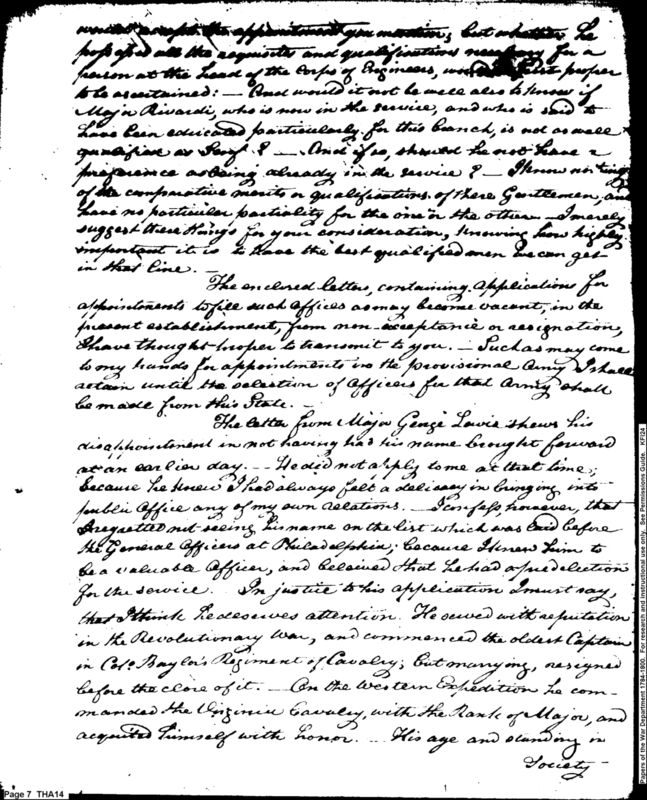 would accept the appointment you mention; but whether he
possesses all the requisites and qualifications necessary for a
person at the head of the Corps of Engineers, first proper
to be ascertained: — And would it not be well also to know if
Major Rivardi, who is now in the service, and who is said to
have been educated particularly for this branch, is not as well
qualified as Senf? — And if so, should he not have a
preference as being already in the service? — I know nothing
of the comparative merits or qualifications of these Gentlemen, and
have no particular partiality for the one or the other — I merely
suggest these things for your consideration, knowing how highly
important it is to have the best qualified men we can get
in that line. —
The enclosed letters, containing Applications for
appointments to fill such Offices as may become vacant, in the
present establishment, from non-acceptance or resignation,
I have thought proper to transmit to you. — Such as may come
to my hands for appointments in the provisional Army I shall
retain until the selection of Officers for that Army shall
be made from this State. —
The letter from Major George Lewis shews his
disappointment in not having had his name brought forward
at an earlier day. — He did not apply to me at that time;
because he knew I had always felt a delicacy in bringing into
public Office any of my own relations. — I confess, however, that
I regretted not seeing his name on the list which was laid before
the General Officers at Philadelphia; because I knew him to
be a valuable Officer, and beleived that he had a predelection
for the service. In justice to his application I must say,
that I think he deserves attention. He served with reputation
in the Revolutionary War, and commenced the oldest Captain
in Colo. Baylor's Regiment of Cavalry; but marrying, resigned
before the close of it. — On the Western Expedition he com-
manded the Virginia Cavalry, with the Rank of Major, and
acquited himself with honor. — His age and standing in
Society
Page 7 THA14
Papers of the War Department 1784-1800. For research and instructional use only. See Permissions Guide. KFI24